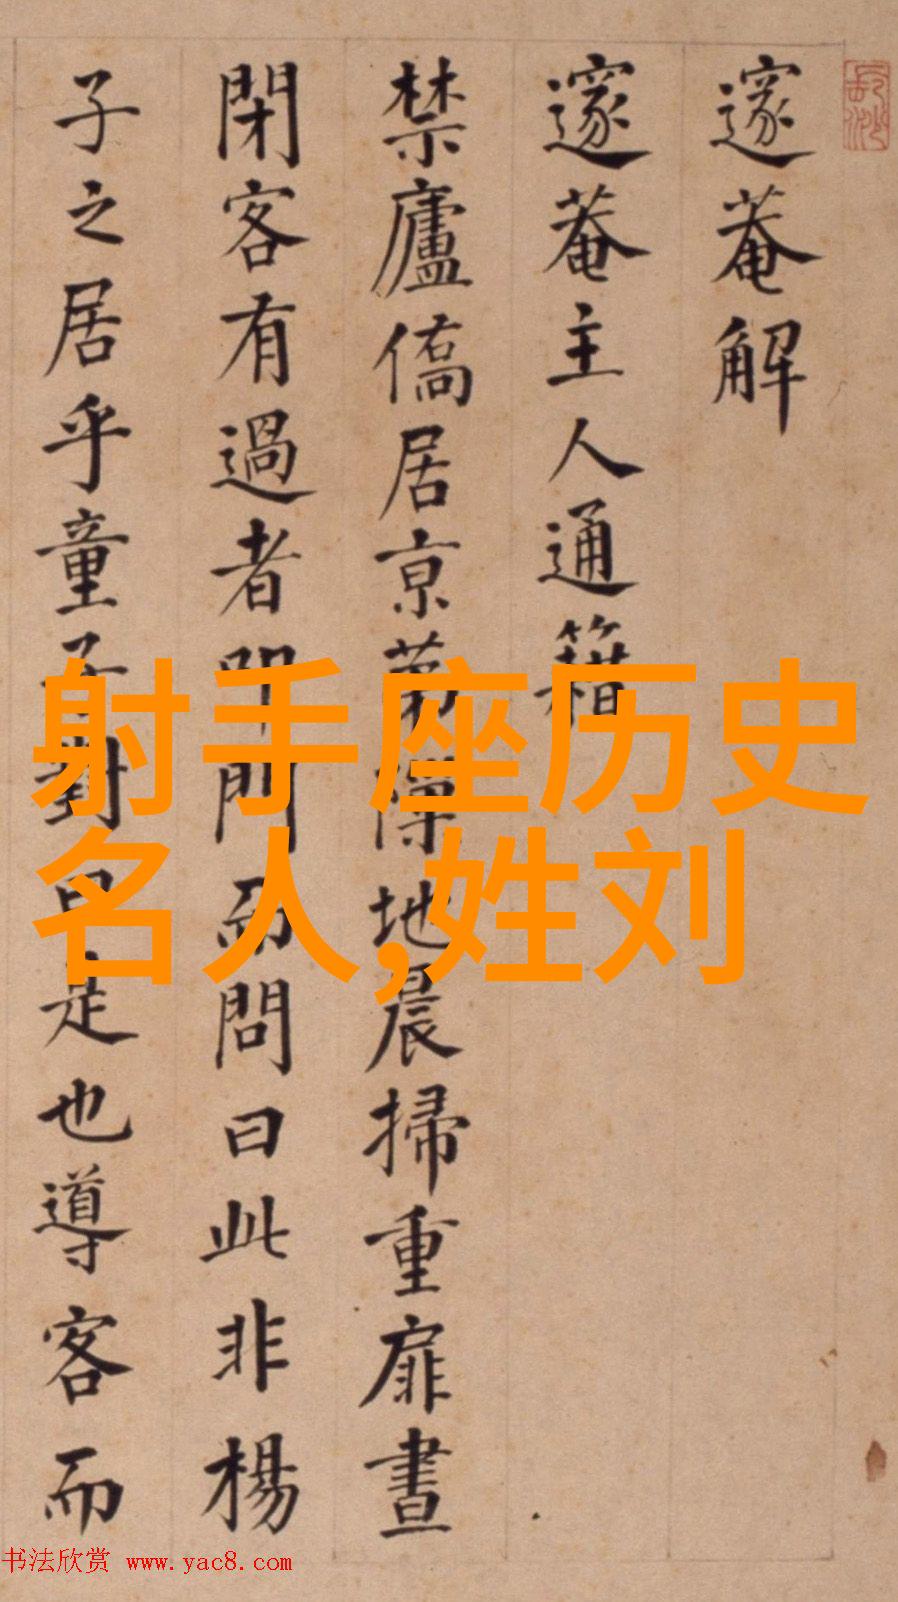 邃菴解
邃菴主人通籍
禁廬僑居京第隙地晨掃重扉晝
閉客有過者叩門而問曰此非楊
子之居乎童子對曰是也導客而
射手座历史
名人,姓刘
书法欣赏 www.yac8.com